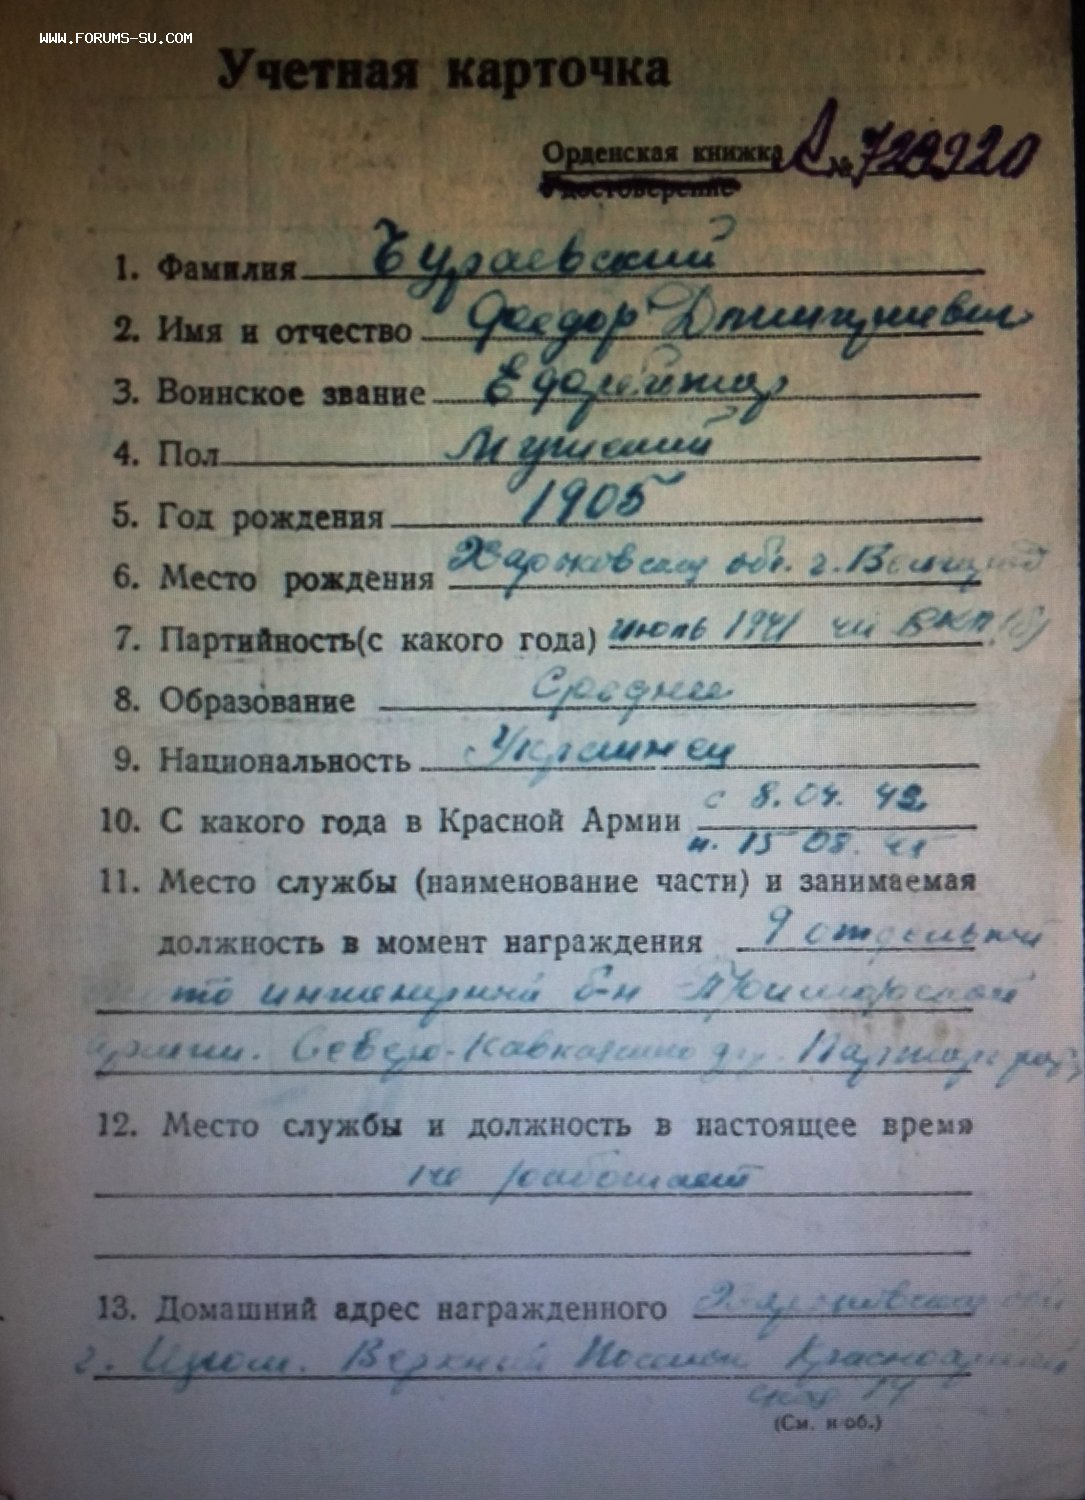 www.forums-su.com
Учетная карточка
Орденская книжка А № 729920
Удостоверение
1. Фамилия
2. Имя и отчество Феодор Дмитриевич
3. Воинское звание Ефрейтор
4. Пол Мужской
5. Год рождения 1905
6. Место рождения Харьковская обл. г.
7. Партийность(с какого года) июль 1941 чл ВКП(б)
8. Образование Среднее
9. Национальность Украинец
10. С какого года в Красной Армии с 8.04. 42
п. 15 08. 45
11. Место службы (наименование части) и занимаемая
должность в момент награждения 9 отдельный
мото инженерный б-н Приморской
армии. Северо-Кавказского
12. Место службы и должность в настоящее время
не работает
13. Домашний адрес награжденного Харьковская обл
г. Изюм. Верхний Поселок
14
(См. н об.)